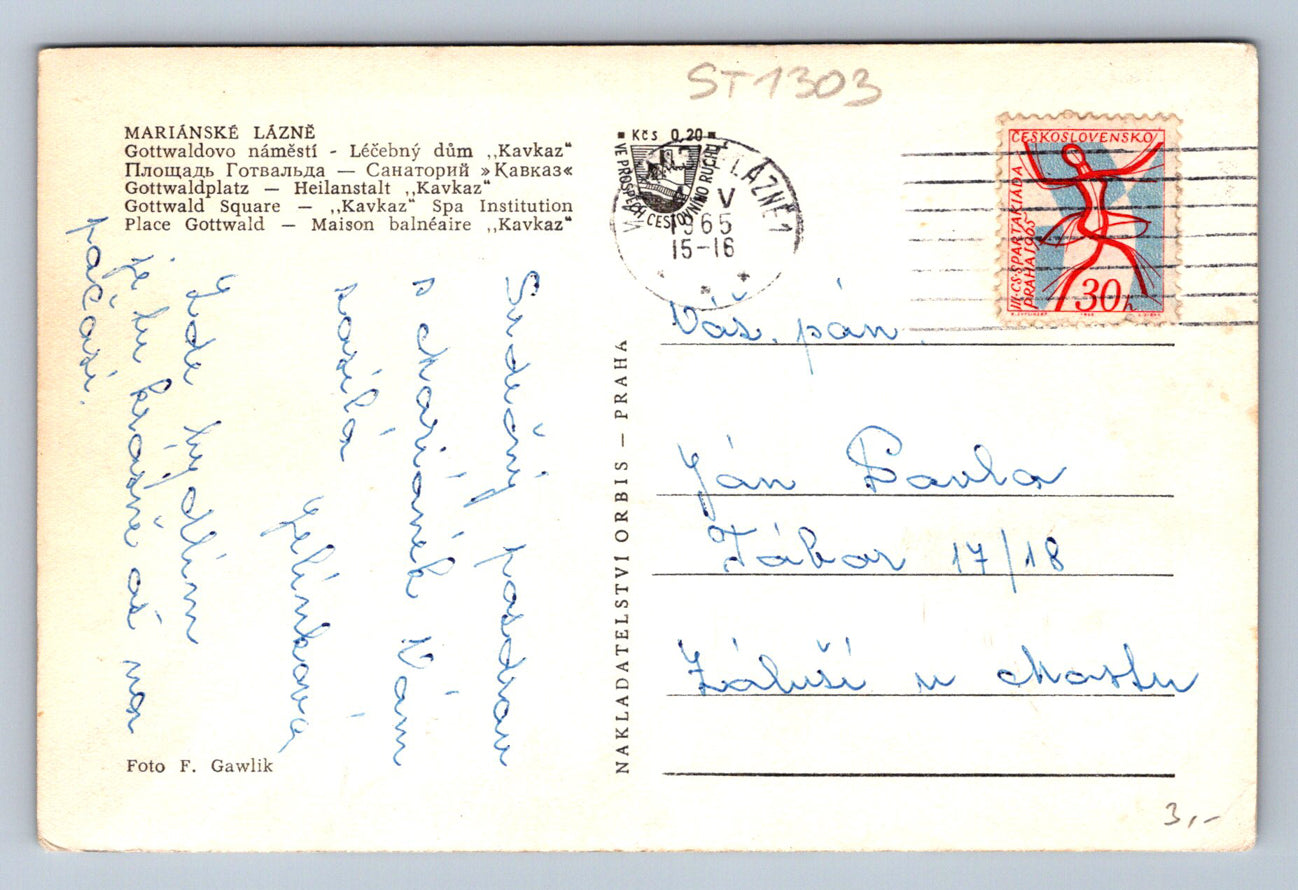 ST1303
MARIÁNSKÉ LÁZNĚ
Gottwaldovo náměstí - Léčebný dům ,,Kavkaz“
Площадь Готвальда — Санаторий »Кавказ«
Gottwaldplatz — Heilanstalt ,,Kavkaz“
Gottwald Square — ,,Kavkaz“ Spa Institution
Place Gottwald — Maison balnéaire ,,Kavkaz“
Srdečný pozdrav
s Mariánek Vám
posílá
Jelínková
Zde bydlím
je tu krásně až na
počasí.
Foto F. Gawlik
NAKLADATELSTVÍ ORBIS — PRAHA
Kčs 0,20
VE PROSPĚCH CESTOVNÍHO RUCHU
LÁZNĚ 1
V
1965
15-16
ČESKOSLOVENSKO
III.CS.SPARTAKIÁDA
PRAHA 1965
30h
Váž. pán
Ján Pavla
Tábor 17/18
Záluží u Mostu
3,-